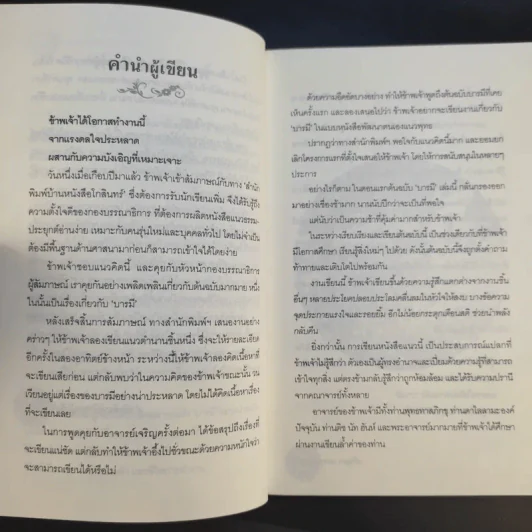 คำนำผู้เขียน
ข้าพเจ้าได้โอกาสทำงานนี้
จากแรงดลใจประหลาด
ผสานกับความบังเอิญที่เหมาะเจาะ
วันหนึ่งเมื่อเกือบปีมาแล้ว ข้าพเจ้าเข้าสัมภาษณ์กับทาง 'สำนัก
พิมพ์บ้านหนังสือโกสินทร์' ซึ่งต้องการรับนักเขียนเพิ่ม จึงได้รับรู้ถึง
ความตั้งใจดีของกองบรรณาธิการ ที่ต้องการผลิตหนังสือแนวธรรม-
ประยุกต์อ่านง่าย เหมาะกับคนรุ่นใหม่และบุคคลทั่วไป โดยไม่จำเป็น
ต้องมีพื้นฐานด้านศาสนามาก่อนก็สามารถเข้าใจได้โดยง่าย
ข้าพเจ้าชอบแนวคิดนี้ และคุยกับหัวหน้ากองบรรณาธิการ
ผู้สัมภาษณ์ เราคุยกันอย่างเพลิดเพลินเกี่ยวกับต้นฉบับมากมาย หนึ่ง
ในนั้นเป็นเรื่องเกี่ยวกับ 'บารมี'
หลังเสร็จสิ้นการสัมภาษณ์ ทางสำนักพิมพ์ฯ เสนองานอย่าง
คร่าวๆ ให้ข้าพเจ้าลองเขียนแนวตำนานชิ้นหนึ่ง ซึ่งจะให้รายละเอียด
อีกครั้งในสองอาทิตย์ข้างหน้า ระหว่างนี้ให้ข้าพเจ้าลองคิดเนื้อหาที่
จะเขียนเสียก่อน แต่กลับพบว่าในความคิดของข้าพเจ้าขณะนั้น วน
เวียนอยู่แต่เรื่องของบารมีอย่างน่าประหลาด โดยไม่ได้คิดเนื้อหาเรื่อง
ที่จะเขียนเลย
ในการพูดคุยกับอาจารย์เจริญครั้งต่อมา ได้ข้อสรุปถึงเรื่องที่
จะเขียนแน่ชัด แต่กลับทำให้ข้าพเจ้าอึ้งไปชั่วขณะด้วยความหนักใจว่า
จะสามารถเขียนได้หรือไม่
ด้วยความอึดอัดบางอย่าง ทำให้ข้าพเจ้าพูดถึงต้นฉบับบารมีที่เคย
เห็นครั้งแรก และลองเสนอไปว่า ข้าพเจ้าอยากจะเขียนงานเกี่ยวกับ
'บารมี' ในแบบหนังสือพัฒนาตนเองแนวพุทธ
ปรากฏว่าทางสำนักพิมพ์ฯ พอใจกับแนวคิดนี้มาก และยอมยก
เลิกโครงการแรกที่ตั้งใจเสนอให้ข้าพเจ้า โดยให้การสนับสนุนในหลายๆ
ประการ
อย่างไรก็ตาม ในตอนแรกต้นฉบับ 'บารมี' เล่มนี้ กลั่นกรองออก
มาอย่างเชื่องช้ามาก นานนับปีกว่าจะเป็นที่พอใจ
แต่นับว่าเป็นความช้าที่คุ้มค่ามากสำหรับข้าพเจ้า
ในระหว่างเรียบเรียงและเขียนต้นฉบับนี้ เป็นช่วงเดียวกับที่ข้าพเจ้า
มีโอกาสศึกษา เรียนรู้สิ่งใหม่ๆ ไปด้วย ดังนั้นต้นฉบับนี้จึงถูกตั้งคำถาม
ท้าทายและเติบโตไปพร้อมกัน
งานเขียนนี้ ข้าพเจ้าเขียนขึ้นด้วยความรู้สึกแตกต่างจากงานชิ้น
อื่นๆ หลายประโยคปลอบประโลมคลื่นลมในหัวใจให้สงบ บางข้อความ
จุดประกายแรงใจและรอยยิ้ม อีกไม่น้อยกระตุกเตือนสติ ช่วยนำพลัง
กลับคืน
ยิ่งกว่านั้น การเขียนหนังสือแนวนี้ เป็นประสบการณ์แปลกที่
ข้าพเจ้าไม่รู้สึกว่า ตัวเองเป็นผู้ทรงอำนาจและเปี่ยมด้วยความรู้ที่สามารถ
เข้าใจทุกสิ่ง แต่ตรงข้ามกลับรู้สึกว่าถูกห้อมล้อม และได้รับความปรานี
จากคณาจารย์ทั้งหลาย
อาจารย์ของข้าพเจ้ามีทั้งท่านพุทธทาสภิกขุ ท่านดาไลลามะองค์
ปัจจุบัน ท่านติช นัท ฮันห์ และพระอาจารย์มากมายที่ข้าพเจ้าได้ศึกษา
ผ่านงานเขียนล้ำค่าของท่าน